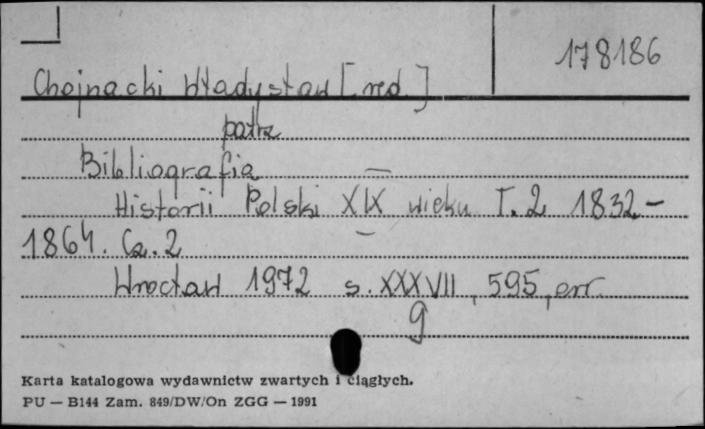 178186
Chojnacki Władysław [red.]
patrz
Bibliografia
Historii Polski XIX wieku T. 2 1832-
1864. Cz. 2
Wrocław 1972 s. XXXVII, 595, err.
g
Karta katalogowa wydawnictw zwartych i ciągłych.
PU — B144 Zam. 849/DW/On ZGG — 1991